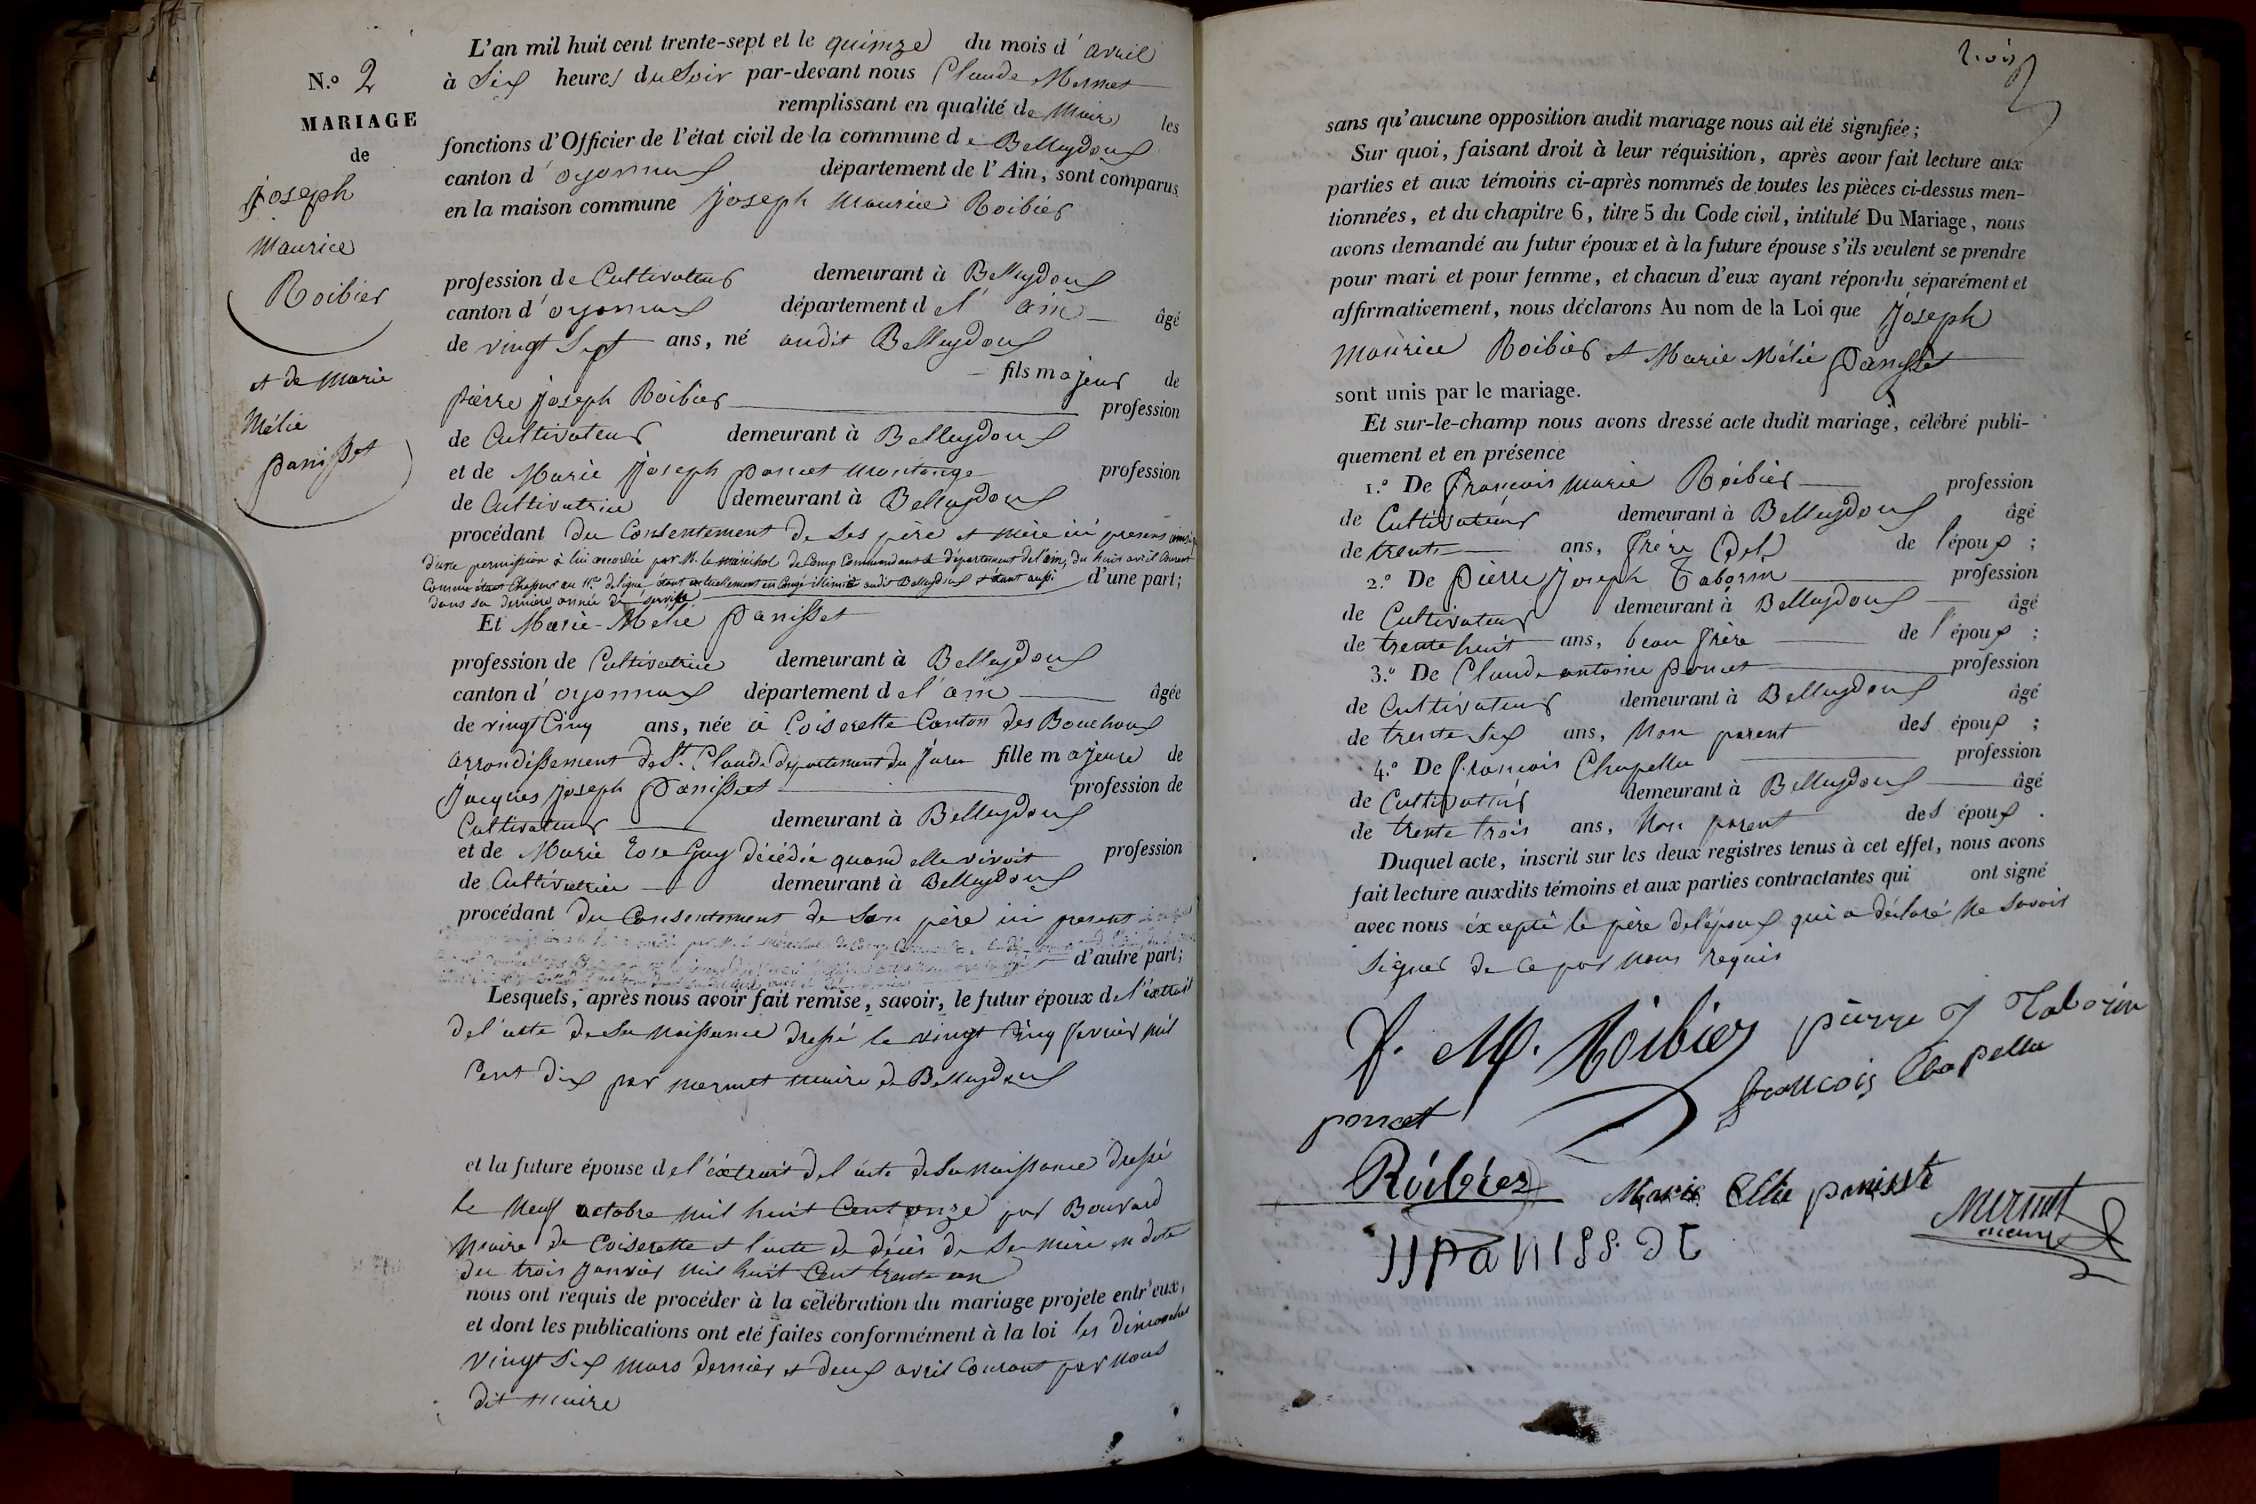 N.o 2
MARIAGE
de
joseph
Maurice
Roibier
et de Marie
Mélie
panisset
L'an mil huit cent trente-sept et le quinze du mois d' avril
à Six heures du Soir par-devant nous Claude Mermet
remplissant en qualité de Maire les
fonctions d'Officier de l'état civil de la commune de Belleydoux
canton d' oyonnax département de l'Ain, sont comparus
en la maison commune joseph maurice Roibier
profession de Cultivateur demeurant à Belleydoux
canton d' oyonnax département de l' ain âgé
de vingt Sept ans, né audit Belleydoux
fils majeur de
pierre joseph Roibier profession
de Cultivateur demeurant à Belleydoux
et de Marie joseph poncet montange profession
de Cultivatrice demeurant à Belleydoux
procédant du Consentement de Ses père et mère ici présens ainsi q
d'une permission à lui accordée par M. le maréchal de Camp Commandant le département de l'ain, du huit avril Courant
Comme étant Chasseur au 11e de ligne étant actuellement en Congé illimité audit Belleydoux et étant aussi d'une part;
dans sa dernière année de service
Et Marie-Mélie panisset
profession de Cultivatrice demeurant à Belleydoux
canton d' oyonnax département de l' ain âgée
de vingt Cinq ans, née à Coiserette Canton des Bouchoux
arrondissement de St. Claude département du jura fille majeure de
jacques joseph panisset profession de
Cultivateur demeurant à Belleydoux
et de Marie Rose Gay décédée quand elle vivoit profession
de Cultivatrice demeurant à Belleydoux
procédant du Consentement de Son père ici présent
d'autre part;
Lesquels, après nous avoir fait remise, savoir, le futur époux de l'extrait
de l'acte de Sa Naissance dressé le vingt Cinq février mil
Cent dix par mermet maire de Belleydoux
et la future épouse de l'extrait de l'acte de Sa Naissance dressé
le Neuf octobre mil huit Cent onze par Bouvard
Maire de Coiserette et l'acte de décès de Sa Mère en date
du trois janvier mil huit Cent trente un
nous ont requis de procéder à la célébration du mariage projeté entr'eux,
et dont les publications ont été faites conformément à la loi les dimanches
vingt Six mars dernier et deux avril Courant par Nous
dit maire
trois
sans qu'aucune opposition audit mariage nous ait été signifiée;
Sur quoi, faisant droit à leur réquisition, après avoir fait lecture aux
parties et aux témoins ci-après nommés de toutes les pièces ci-dessus men-
tionnées, et du chapitre 6, titre 5 du Code civil, intitulé Du Mariage, nous
avons demandé au futur époux et à la future épouse s'ils veulent se prendre
pour mari et pour femme, et chacun d'eux ayant répondu séparément et
affirmativement, nous déclarons Au nom de la Loi que joseph
maurice Roibier et Marie Mélie panisset
sont unis par le mariage.
Et sur-le-champ nous avons dressé acte dudit mariage, célébré publi-
quement et en présence
1.o De françois marie Roibier profession
de Cultivateur demeurant à Belleydoux âgé
de trente ans, frère de l'époux;
2.o De pierre joseph Taborin profession
de Cultivateur demeurant à Belleydoux âgé
de trente huit ans, beau frère de l'époux;
3.o De Claude antoine poncet profession
de Cultivateur demeurant à Belleydoux âgé
de trente Six ans, Non parent des époux;
4.o De françois Chapellu profession
de Cultivateur demeurant à Belleydoux âgé
de trente trois ans, Non parent des époux.
Duquel acte, inscrit sur les deux registres tenus à cet effet, nous avons
fait lecture auxdits témoins et aux parties contractantes qui ont signé
avec nous éxcepté le père de l'époux qui a déclaré Ne Savoir
Signer de ce par nous requis
f. M. Roibier pierre J Taborin
poncet françois Chapellu
Roibier Marie Elie panisset mermet
maire
JJ PANISSET